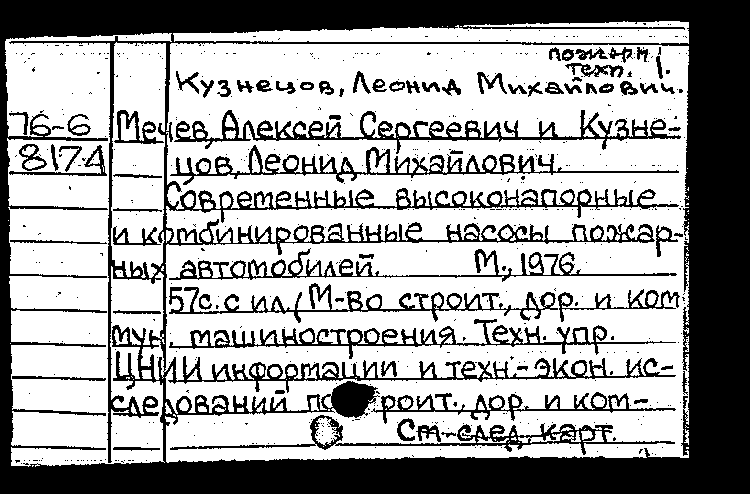 пожарн 1.
техн.
Кузнецов, Леонид Михайлович.
76-6 Мечев, Алексей Сергеевич и Кузне-
817А цов, Леонид Михайлович.
Современные высоконапорные
и комбинированные насосы пожар-
ных автомобилей. М., 1976.
57с. с ил. (М-во строит., дор. и ком
мун. машиностроения. Техн. упр.
ЦНИИ информации и техн.-экон. ис-
следований по роит., дор. и ком-
См-след. карт.